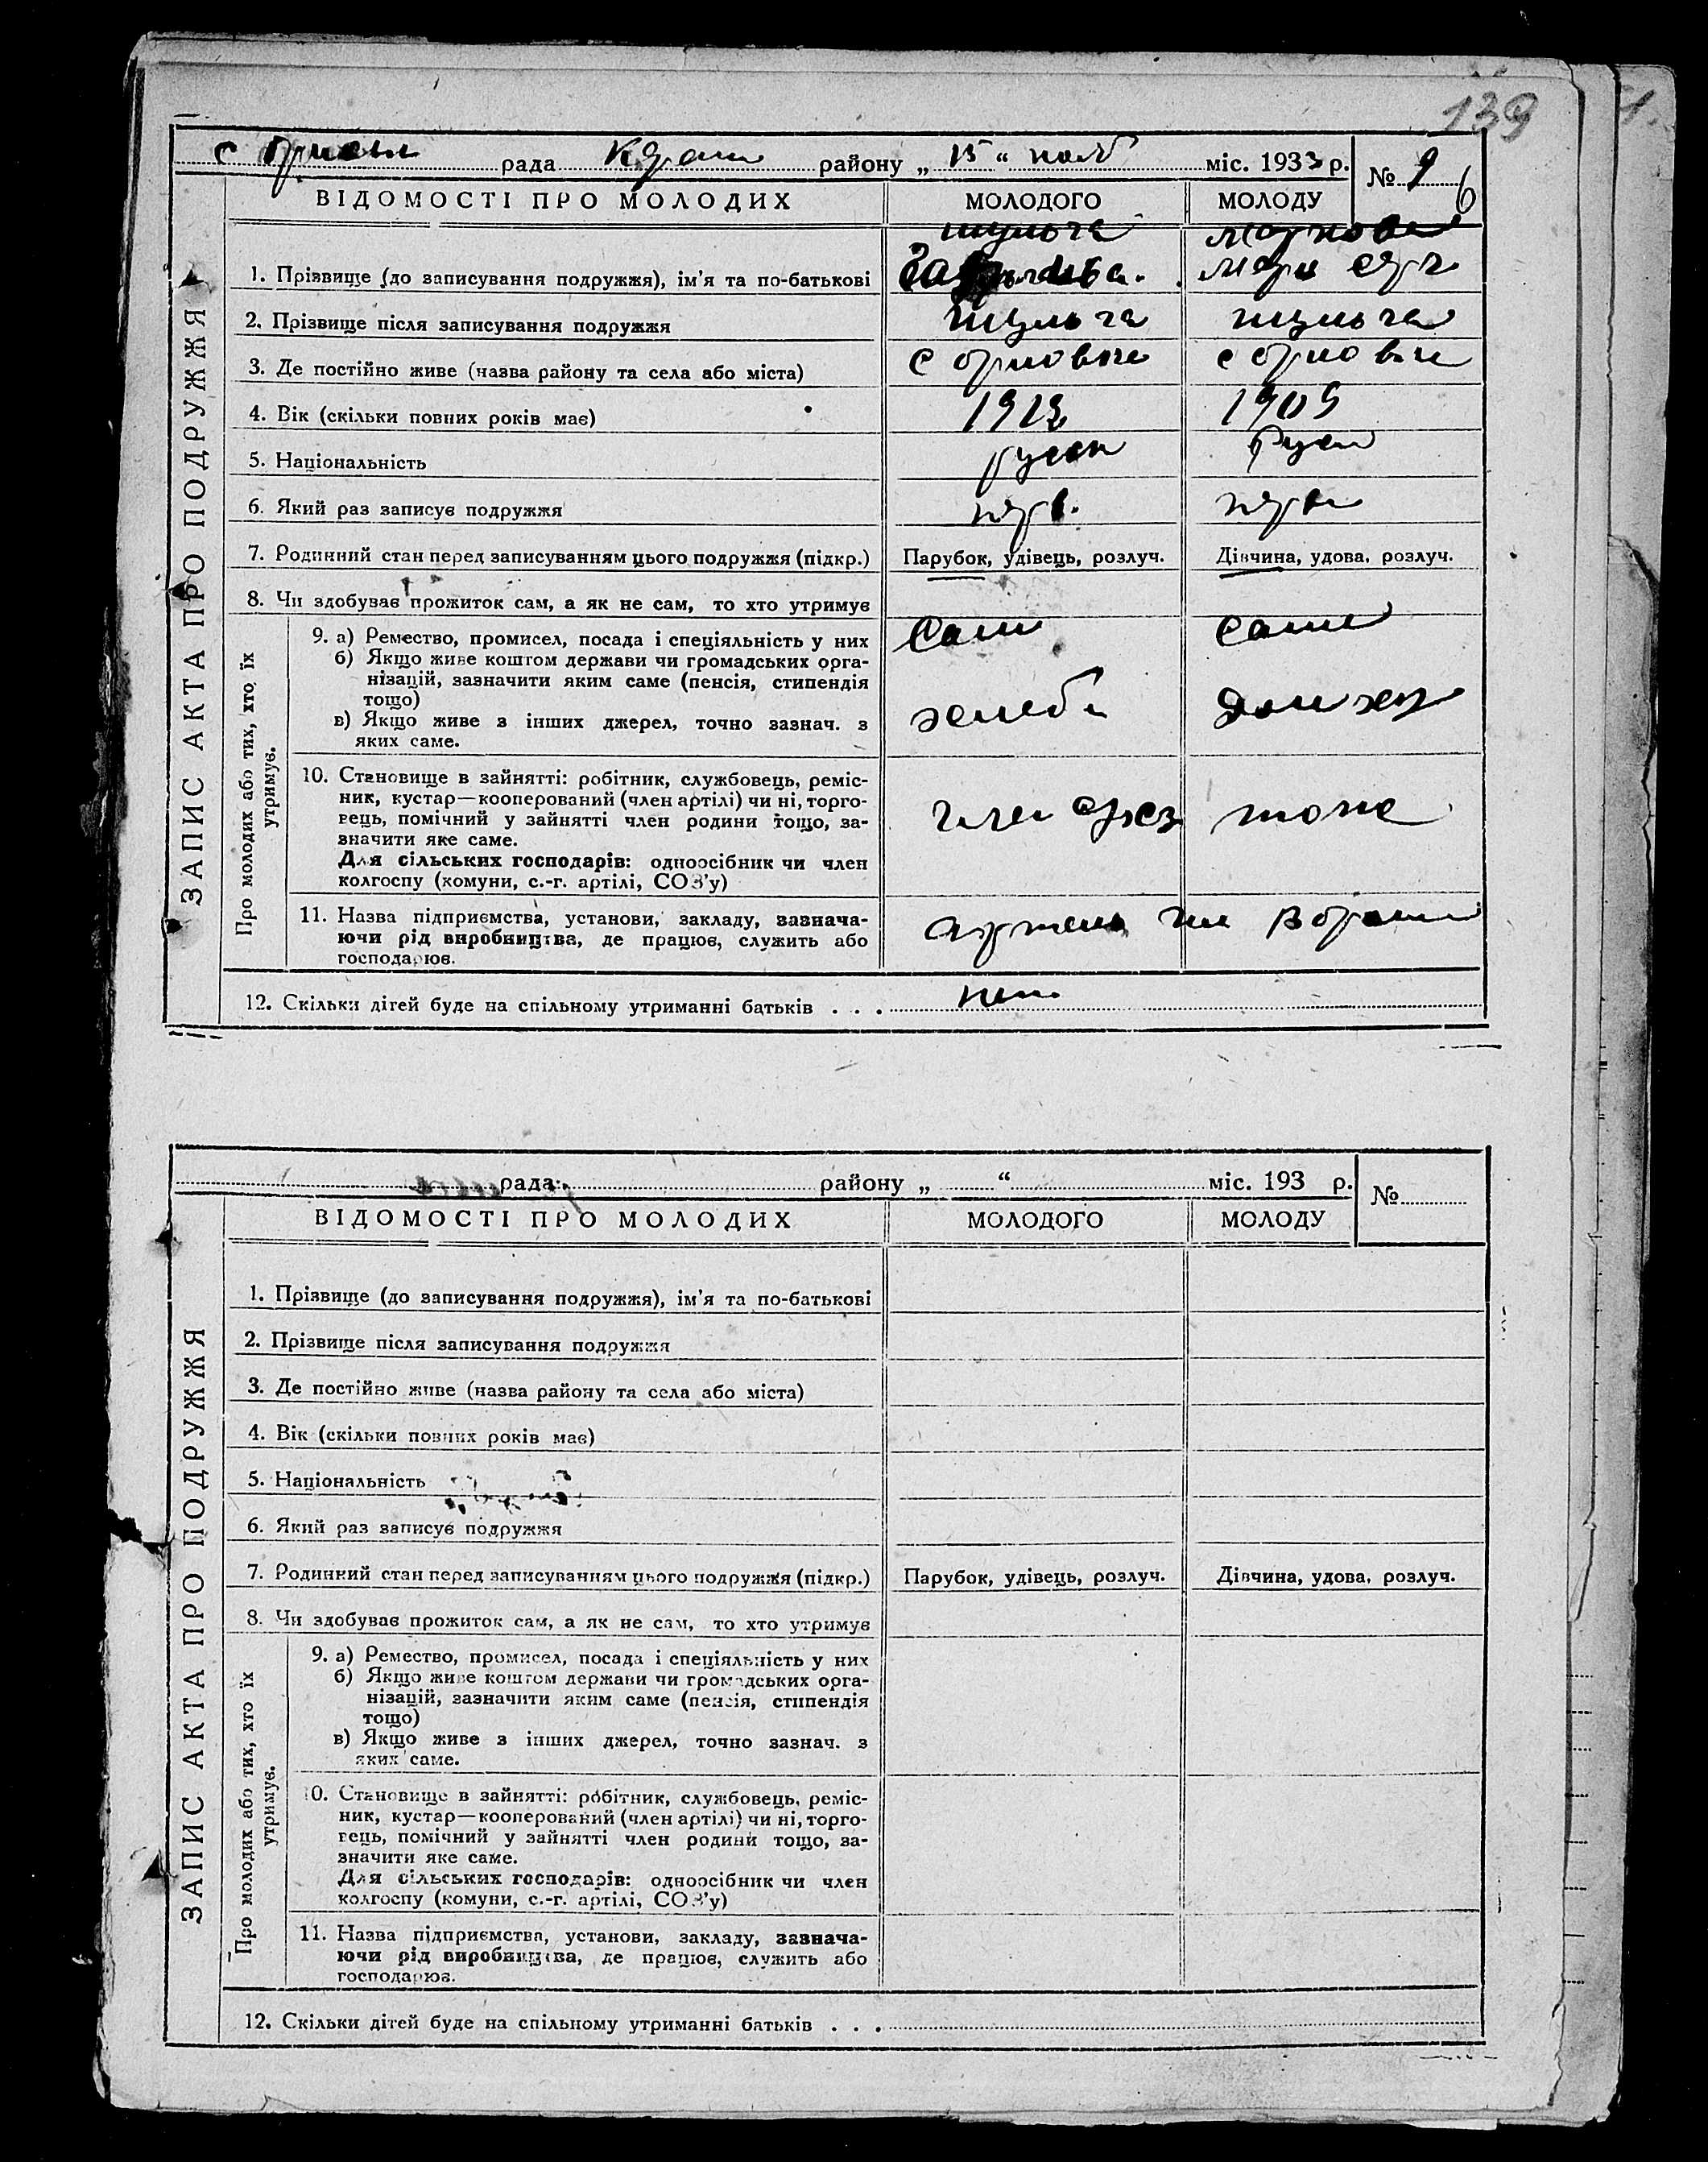 139
с рада район у „ 15 “ нояб міс. 1933 р. № 9
ВІДОМОСТІ ПРО МОЛОДИХ МОЛОДОГО МОЛОДУ
ЗАПИС АКТА ПРО ПОДРУЖЖЯ
Шульга Маркова
1. Прізвище (до записування подружжя), ім’я та по-батькові Мари
2. Прізвище після записування подружжя Шульга Шульга
3. Де постійно живе (назва району та села або міста) с с
4. Вік (скільки повних років має) 1909
5. Національність русск Руск
6. Який раз записує подружжя перв. перви
7. Родинний стан перед записуванням цього подружжя (підкр.) Парубок, удівець, розлуч. Дівчина, удова, розлуч.
8. Чи здобуває прожиток сам, а як не сам, то хто утримує
Про молодих або тих, хто їх утримує.
9. а) Ремество, промисел, посада і спеціяльність у них Сами Сами
б) Якщо живе коштом держави чи громадських орга-
нізацій, зазначити яким саме (пенсія, стипендія
тощо)
в) Якщо живе з інших джерел, точно зазнач. з
яких саме.
10. Становище в зайнятті: робітник, службовець, реміс-
ник, кустар—кооперований (член артілі) чи ні, торго-
вець, помічний у зайнятті член родини тощо, за-
значити яке саме.
Для сільських господарів: одноосібник чи член
колгоспу (комуни, с.-г. артілі, СОЗ’у)
член тоже
11. Назва підприємства, установи, закладу, зазнача-
ючи рід виробництва, де працює, служить або
господарює.
артель им
12. Скільки дітей буде на спільному утриманні батьків . . . нет
рада району „ “ міс. 193 р. №
ВІДОМОСТІ ПРО МОЛОДИХ МОЛОДОГО МОЛОДУ
ЗАПИС АКТА ПРО ПОДРУЖЖЯ
1. Прізвище (до записування подружжя), ім’я та по-батькові
2. Прізвище після записування подружжя
3. Де постійно живе (назва району та села або міста)
4. Вік (скільки повних років має)
5. Національність
6. Який раз записує подружжя
7. Родинний стан перед записуванням цього подружжя (підкр.) Парубок, удівець, розлуч. Дівчина, удова, розлуч.
8. Чи здобуває прожиток сам, а як не сам, то хто утримує
Про молодих або тих, хто їх утримує.
9. а) Ремество, промисел, посада і спеціяльність у них
б) Якщо живе коштом держави чи громадських орга-
нізацій, зазначити яким саме (пенсія, стипендія
тощо)
в) Якщо живе з інших джерел, точно зазнач. з
яких саме.
10. Становище в зайнятті: робітник, службовець, реміс-
ник, кустар—кооперований (член артілі) чи ні, торго-
вець, помічний у зайнятті член родини тощо, за-
значити яке саме.
Для сільських господарів: одноосібник чи член
колгоспу (комуни, с.-г. артілі, СОЗ’у)
11. Назва підприємства, установи, закладу, зазнача-
ючи рід виробництва, де працює, служить або
господарює.
12. Скільки дітей буде на спільному утриманні батьків . . .